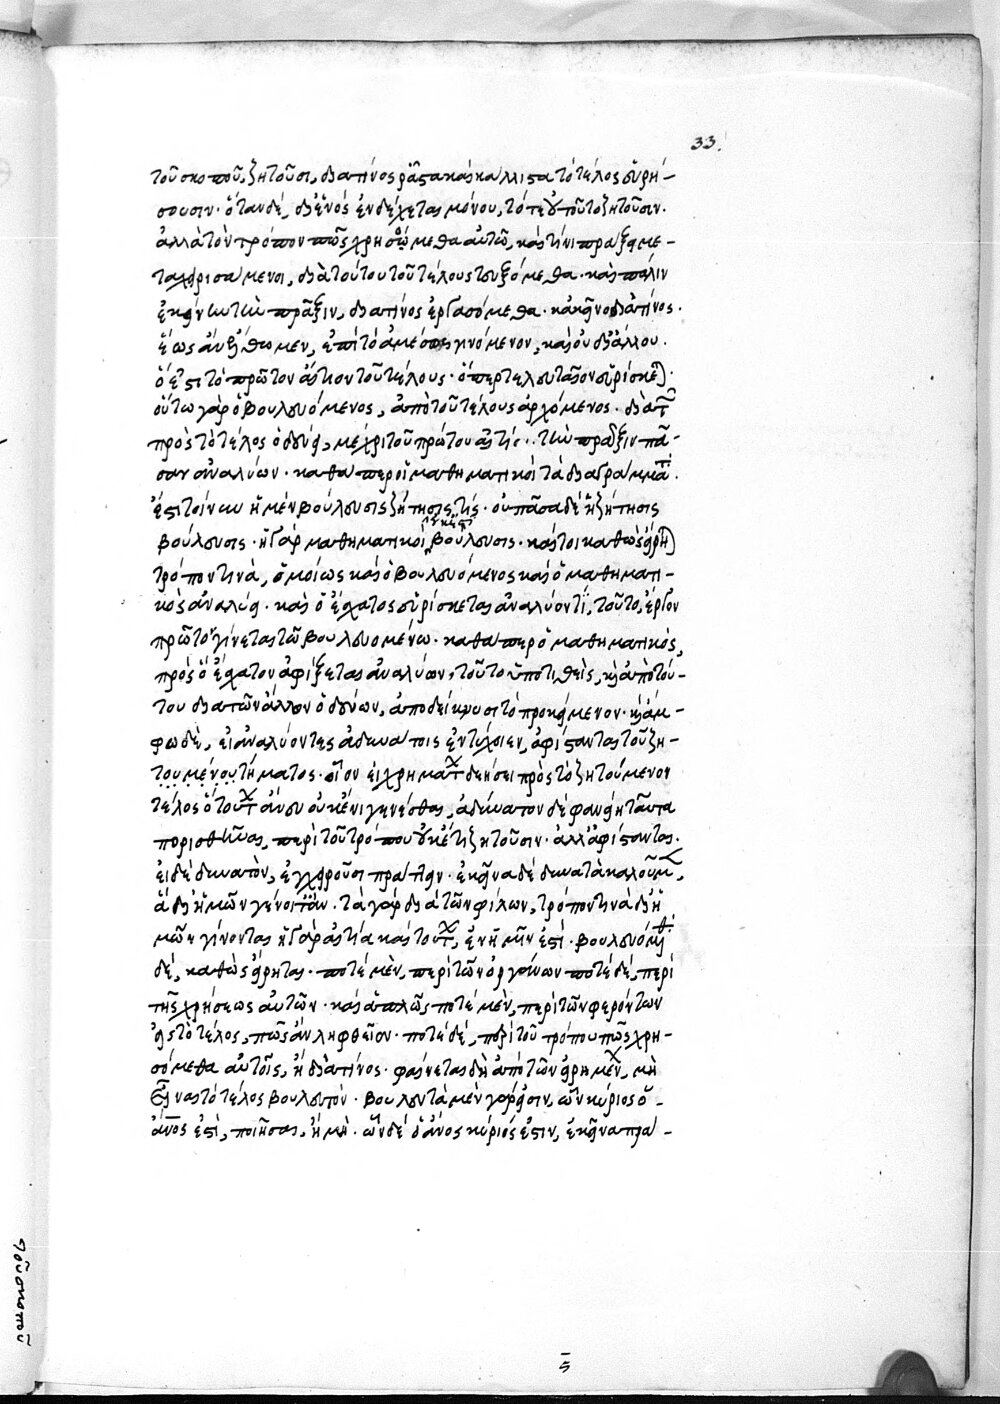 33.
τοῦ σκοποῦ, ζητοῦσι, διὰ τίνος ῥᾷστα καὶ κάλλιστα τὸ τέλος εὑρή-
σουσιν· ὅταν δὲ, δι' ἑνὸς ἐνδέχεται μόνου, τότε οὐ τοῦτο ζητοῦσιν.
ἀλλὰ τὸν τρόπον πῶς χρησόμεθα αὐτῷ, καὶ τίνι πράξει με-
ταχειρισάμενοι, διὰ τούτου τοῦ τέλους τευξόμεθα· καὶ πάλιν
ἐκείνην τὴν πρᾶξιν, διὰ τίνος ἐργασόμεθα· κἀκεῖνο διὰ τίνος.
ἕως ἂν ἔλθωμεν, ἐπὶ τὸ ἀμέσως γινόμενον, καὶ οὐ δι' ἄλλου.
ὅ ἐστι τὸ πρῶτον αἴτιον τοῦ τέλους· ὅπερ τελευταῖον εὑρίσκεται·
οὕτω γὰρ ὁ βουλευόμενος, ἀπὸ τοῦ τέλους ἀρχόμενος· διὰ τῶν
πρὸς τὸ τέλος ὁδεύει, μέχρι τοῦ πρώτου αἰτίου· τὴν πρᾶξιν πᾶ-
σαν ἀναλύων· καθάπερ οἱ μαθηματικοὶ τὰ διαγράμματα·
ἔστι τοίνυν ἡ μὲν βούλευσις ζήτησις τίς· οὐ πᾶσα δὲ ἡ ζήτησις
βούλευσις· ἡ γὰρ μαθηματικὴ οὐκ ἔστι βούλευσις· καίτοι καθὼς εἴρηται
τρόπον τινὰ, ὁμοίως καὶ ὁ βουλευόμενος καὶ ὁ μαθηματι-
κὸς ἀναλύει· καὶ ὃ ἔσχατος εὑρίσκεται ἀναλύοντι, τοῦτο, ἔργον
πρῶτον γίνεται τῷ βουλευομένῳ· καθάπερ ὁ μαθηματικὸς,
πρὸς ὃ ἔσχατον ἀφίξεται ἀναλύων, τοῦτο ὑποτιθεὶς, καὶ ἀπὸ τού-
του διὰ τῶν ἄλλων ὁδεύων, ἀποδείκνυσι τὸ προκείμενον· καὶ ἄμ-
φω δὲ, εἰ ἀναλύοντες ἀδυνάτοις ἐντύχοιεν, ἀφίστανται τοῦ ζη-
τουμένου τήματος· οἷον εἰ χρημάτων δεήσει πρὸς τὸ ζητούμενον
τέλος ὃ τούτων ἄνευ οὐκ ἔνι γενέσθαι, ἀδύνατον δὲ φανείη ταῦτα
πορισθῆναι, περὶ τοῦ τρόπου οὐκέτι ζητοῦσιν· ἀλλ' ἀφίστανται.
εἰ δὲ δυνατὸν, ἐγχειροῦσι πράττειν· ἐκεῖνα δὲ δυνατὰ καλοῦμεν,
ἃ δι' ἡμῶν γένοιτ' ἄν· τὰ γὰρ διὰ τῶν φίλων, τρόπον τινὰ δι' ἡ-
μῶν γίνονται ἡ γὰρ αἰτία καὶ τούτων, ἐν ἡμῖν ἐστί· βουλευόμεθα
δὲ, καθὼς εἴρηται· ποτὲ μὲν, περὶ τῶν ὀργάνων ποτὲ δὲ, περὶ
τῆς χρήσεως αὐτῶν· καὶ ἁπλῶς ποτὲ μὲν, περὶ τῶν φερόντων
εἰς τὸ τέλος, πῶς ἂν ληφθεῖεν· ποτὲ δὲ, περὶ τοῦ τρόπου πῶς χρη-
σόμεθα αὐτοῖς, ἢ διὰ τίνος· φαίνεται δὴ ἀπὸ τῶν εἰρημένων, μὴ
εἶναι τὸ τέλος βουλευτόν· βουλευτὰ μὲν γάρ εἰσιν, ὧν κύριος ὁ
ἄνος ἐστὶ, ποιῆσαι, ἢ μή· ὧν δὲ ὁ ἄνος κύριός ἐστιν, ἐκεῖνα πρα-
ς
τοῦ σκοποῦ